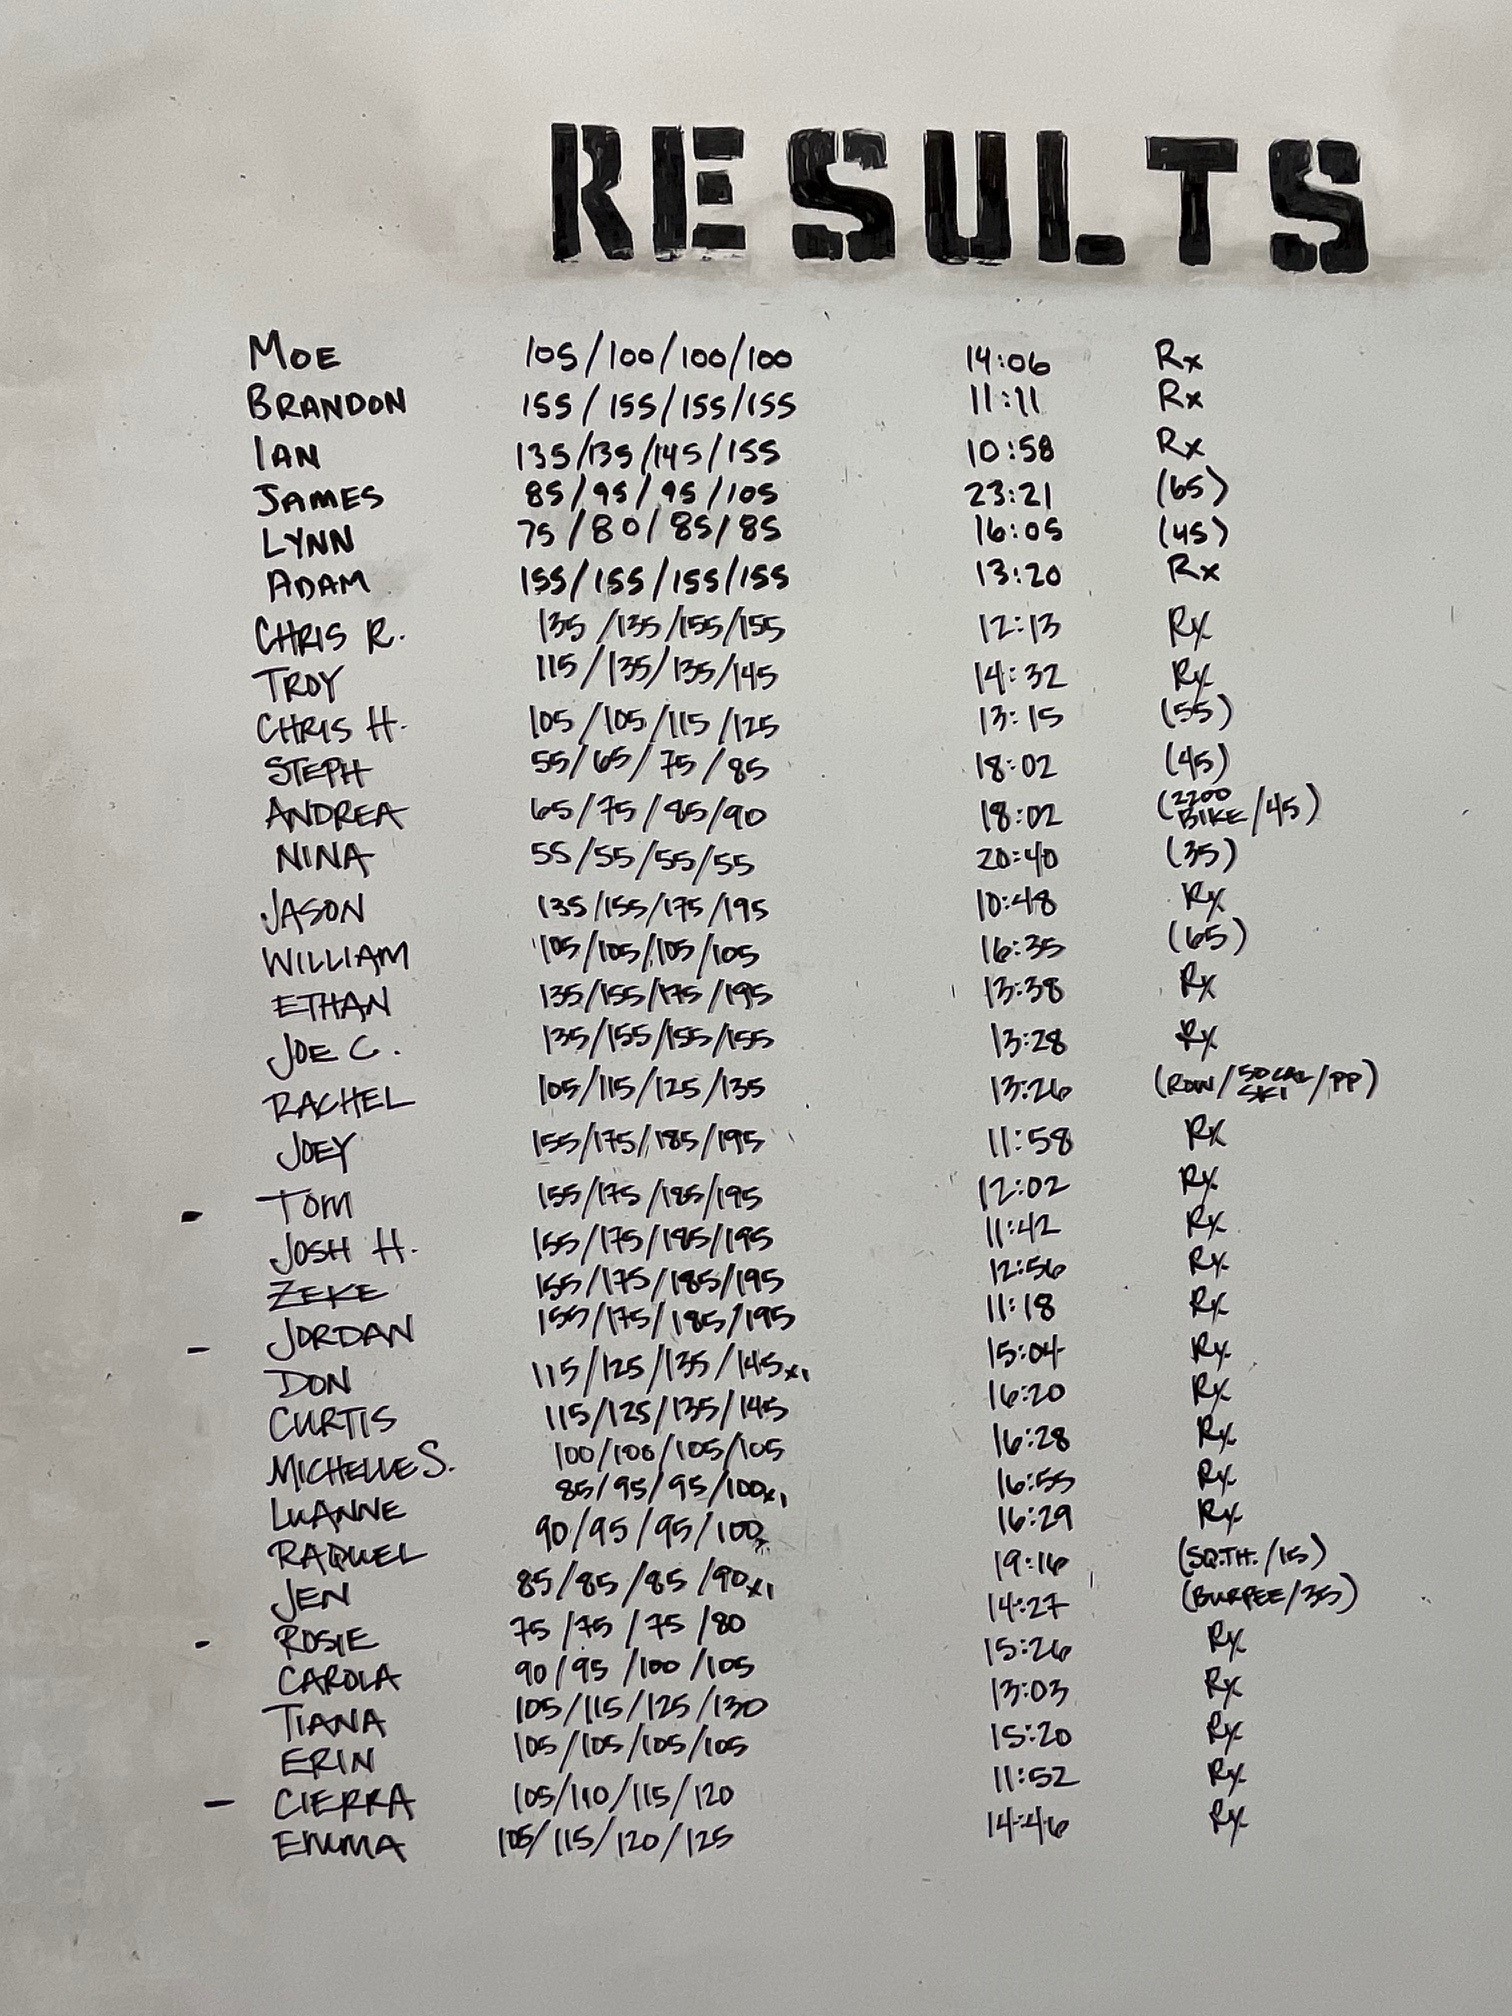 RESULTS
MOE 105/100/100/100 14:06 Rx
BRANDON 155/155/155/155 11:11 Rx
IAN 135/135/145/155 10:58 Rx
JAMES 85/95/95/105 23:21 (65)
LYNN 75/80/85/85 16:05 (45)
ADAM 155/155/155/155 13:20 Rx
CHRIS R. 135/135/155/155 12:13 Rx
TROY 115/135/135/145 14:32 Rx
CHRIS H. 105/105/115/125 13:15 (55)
STEPH 55/65/75/85 18:02 (45)
ANDREA 65/75/85/90 18:02 (2200 BIKE/45)
NINA 55/55/55/55 20:40 (35)
JASON 135/155/175/195 10:48 Rx
WILLIAM 105/105/105/105 16:35 (65)
ETHAN 135/155/175/195 13:38 Rx
JOE C. 135/155/155/155 13:28 Rx
RACHEL 105/115/125/135 13:26 (ROW/50 CAL SKI/PP)
JOEY 155/175/185/195 11:58 Rx
- TOM 155/175/185/195 12:02 Rx
JOSH H. 155/175/185/195 11:42 Rx
ZEKE 155/175/185/195 12:56 Rx
- JORDAN 155/175/185/195 11:18 Rx
DON 115/125/135/145x1 15:04 Rx
CURTIS 115/125/135/145 16:20 Rx
MICHELLE S. 100/100/105/105 16:28 Rx
LUANNE 85/95/95/100x1 16:55 Rx
RAQUEL 90/95/95/100 16:29 Rx
JEN 85/85/85/90x1 19:16 (SQ.TH./15)
- ROSIE 75/75/75/80 14:27 (BURPEE/35)
CAROLA 90/95/100/105 15:26 Rx
TIANA 105/115/125/130 13:03 Rx
ERIN 105/105/105/105 15:20 Rx
- CIERRA 105/110/115/120 11:52 Rx
EMMA 105/115/120/125 14:46 Rx